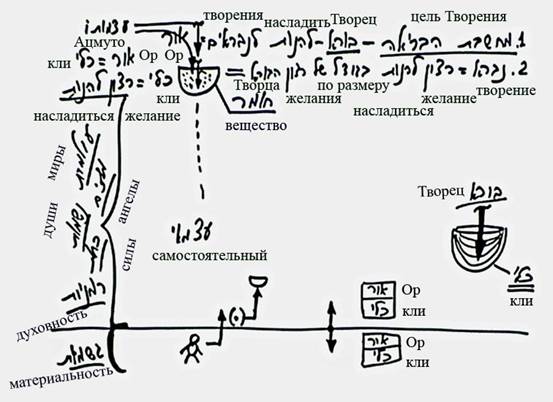 творения насладить Творец цель Творения
עצמותו
Ацмуто
אור
1. מחשבת הבריאה - בורא - להנות לנבראים =
кли Ор Ор
אור = כלי
2. נברא = רצון להנות בגודל של רצון הבורא =
Творца по размеру творение
желания насладиться желание
כלי = רצון להנות
кли
חומר
насладиться желание
вещество
миры
עולמות
ангелы
души
נשמות
силы
Творец בורא
עצמאי
самостоятельный
כלי
кли
רוחניות
духовность
אור Ор
כלי кли
אור Ор
כלי кли
גשמיות
материальность